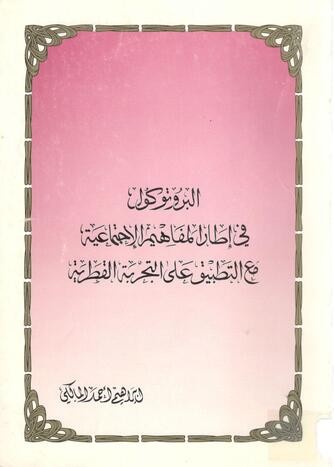 البروتوكول
في إطار المفاهيم الإجتماعية
مع التطبيق على التجربة القطرية
ابراهيم احمد المالكي